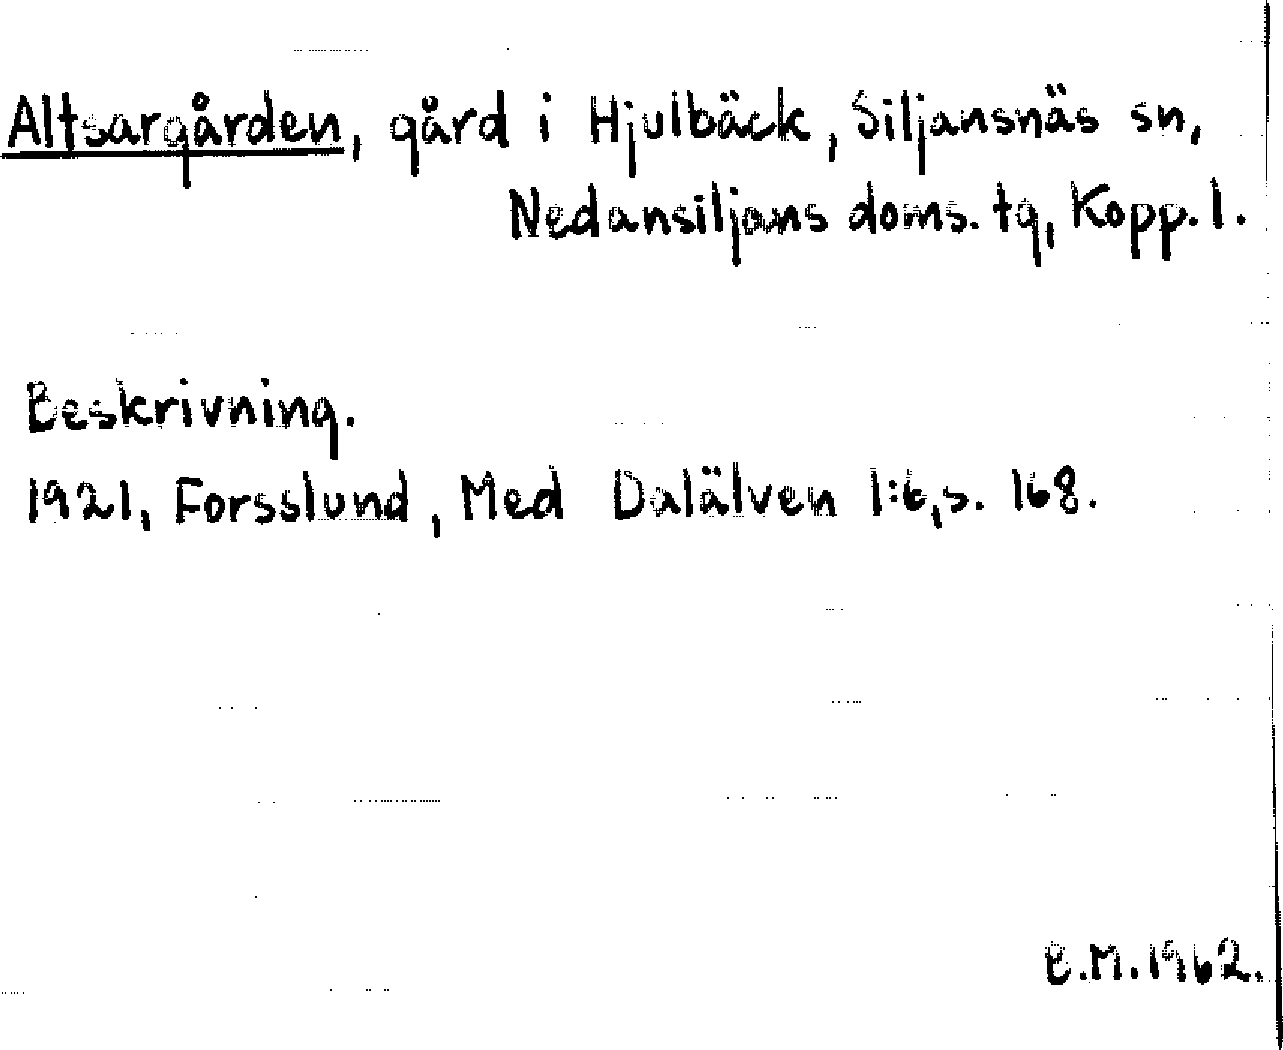 Altsargården, gård i Hjulbäck, Siljansnäs sn,
Nedansiljans doms. tg, Kopp. l.
Beskrivning.
1921, Forsslund, Med Dalälven 1:6, s. 168.
B.M. 1962.